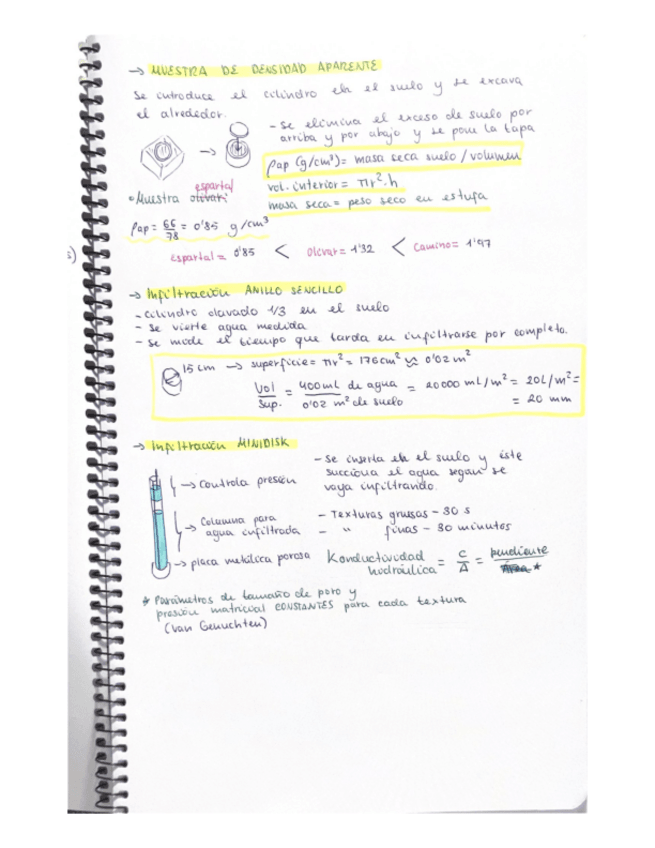 → MUESTRA DE DENSIDAD APARENTE
Se introduce el cilindro en el suelo y se excava
el alrededor.
- Se elimina el exceso de suelo por
arriba y por abajo y se pone la tapa
ρap (g/cm³) = masa seca suelo / volumen
espartal
• Muestra olivar:
vol. interior = πr²·h
masa seca = peso seco en estufa
ρap = 66/78 = 0'85 g/cm³
espartal = 0'85 < olivar = 1'32 < camino = 1'97
→ Infiltración ANILLO SENCILLO
- cilindro clavado 1/3 en el suelo
- se vierte agua medida
- se mide el tiempo que tarda en infiltrarse por completo.
15 cm → superficie = πr² = 176cm² ≈ 0'02 m²
Vol/Sup. = 400ml de agua / 0'02 m² de suelo = 20000 ml/m² = 20L/m² =
= 20 mm
→ Infiltración MINIDISK
- se inserta en el suelo y éste
succiona el agua segun se
vaya infiltrando.
→ Controla presión
- Texturas gruesas - 30 s
- " finas - 30 minutos
→ Columna para
agua infiltrada
→ placa metálica porosa
Konductividad
hidráulica = C/A = pendiente / *
* Parámetros de tamaño de poro y
presión matricial CONSTANTES para cada textura
(van Genuchten)